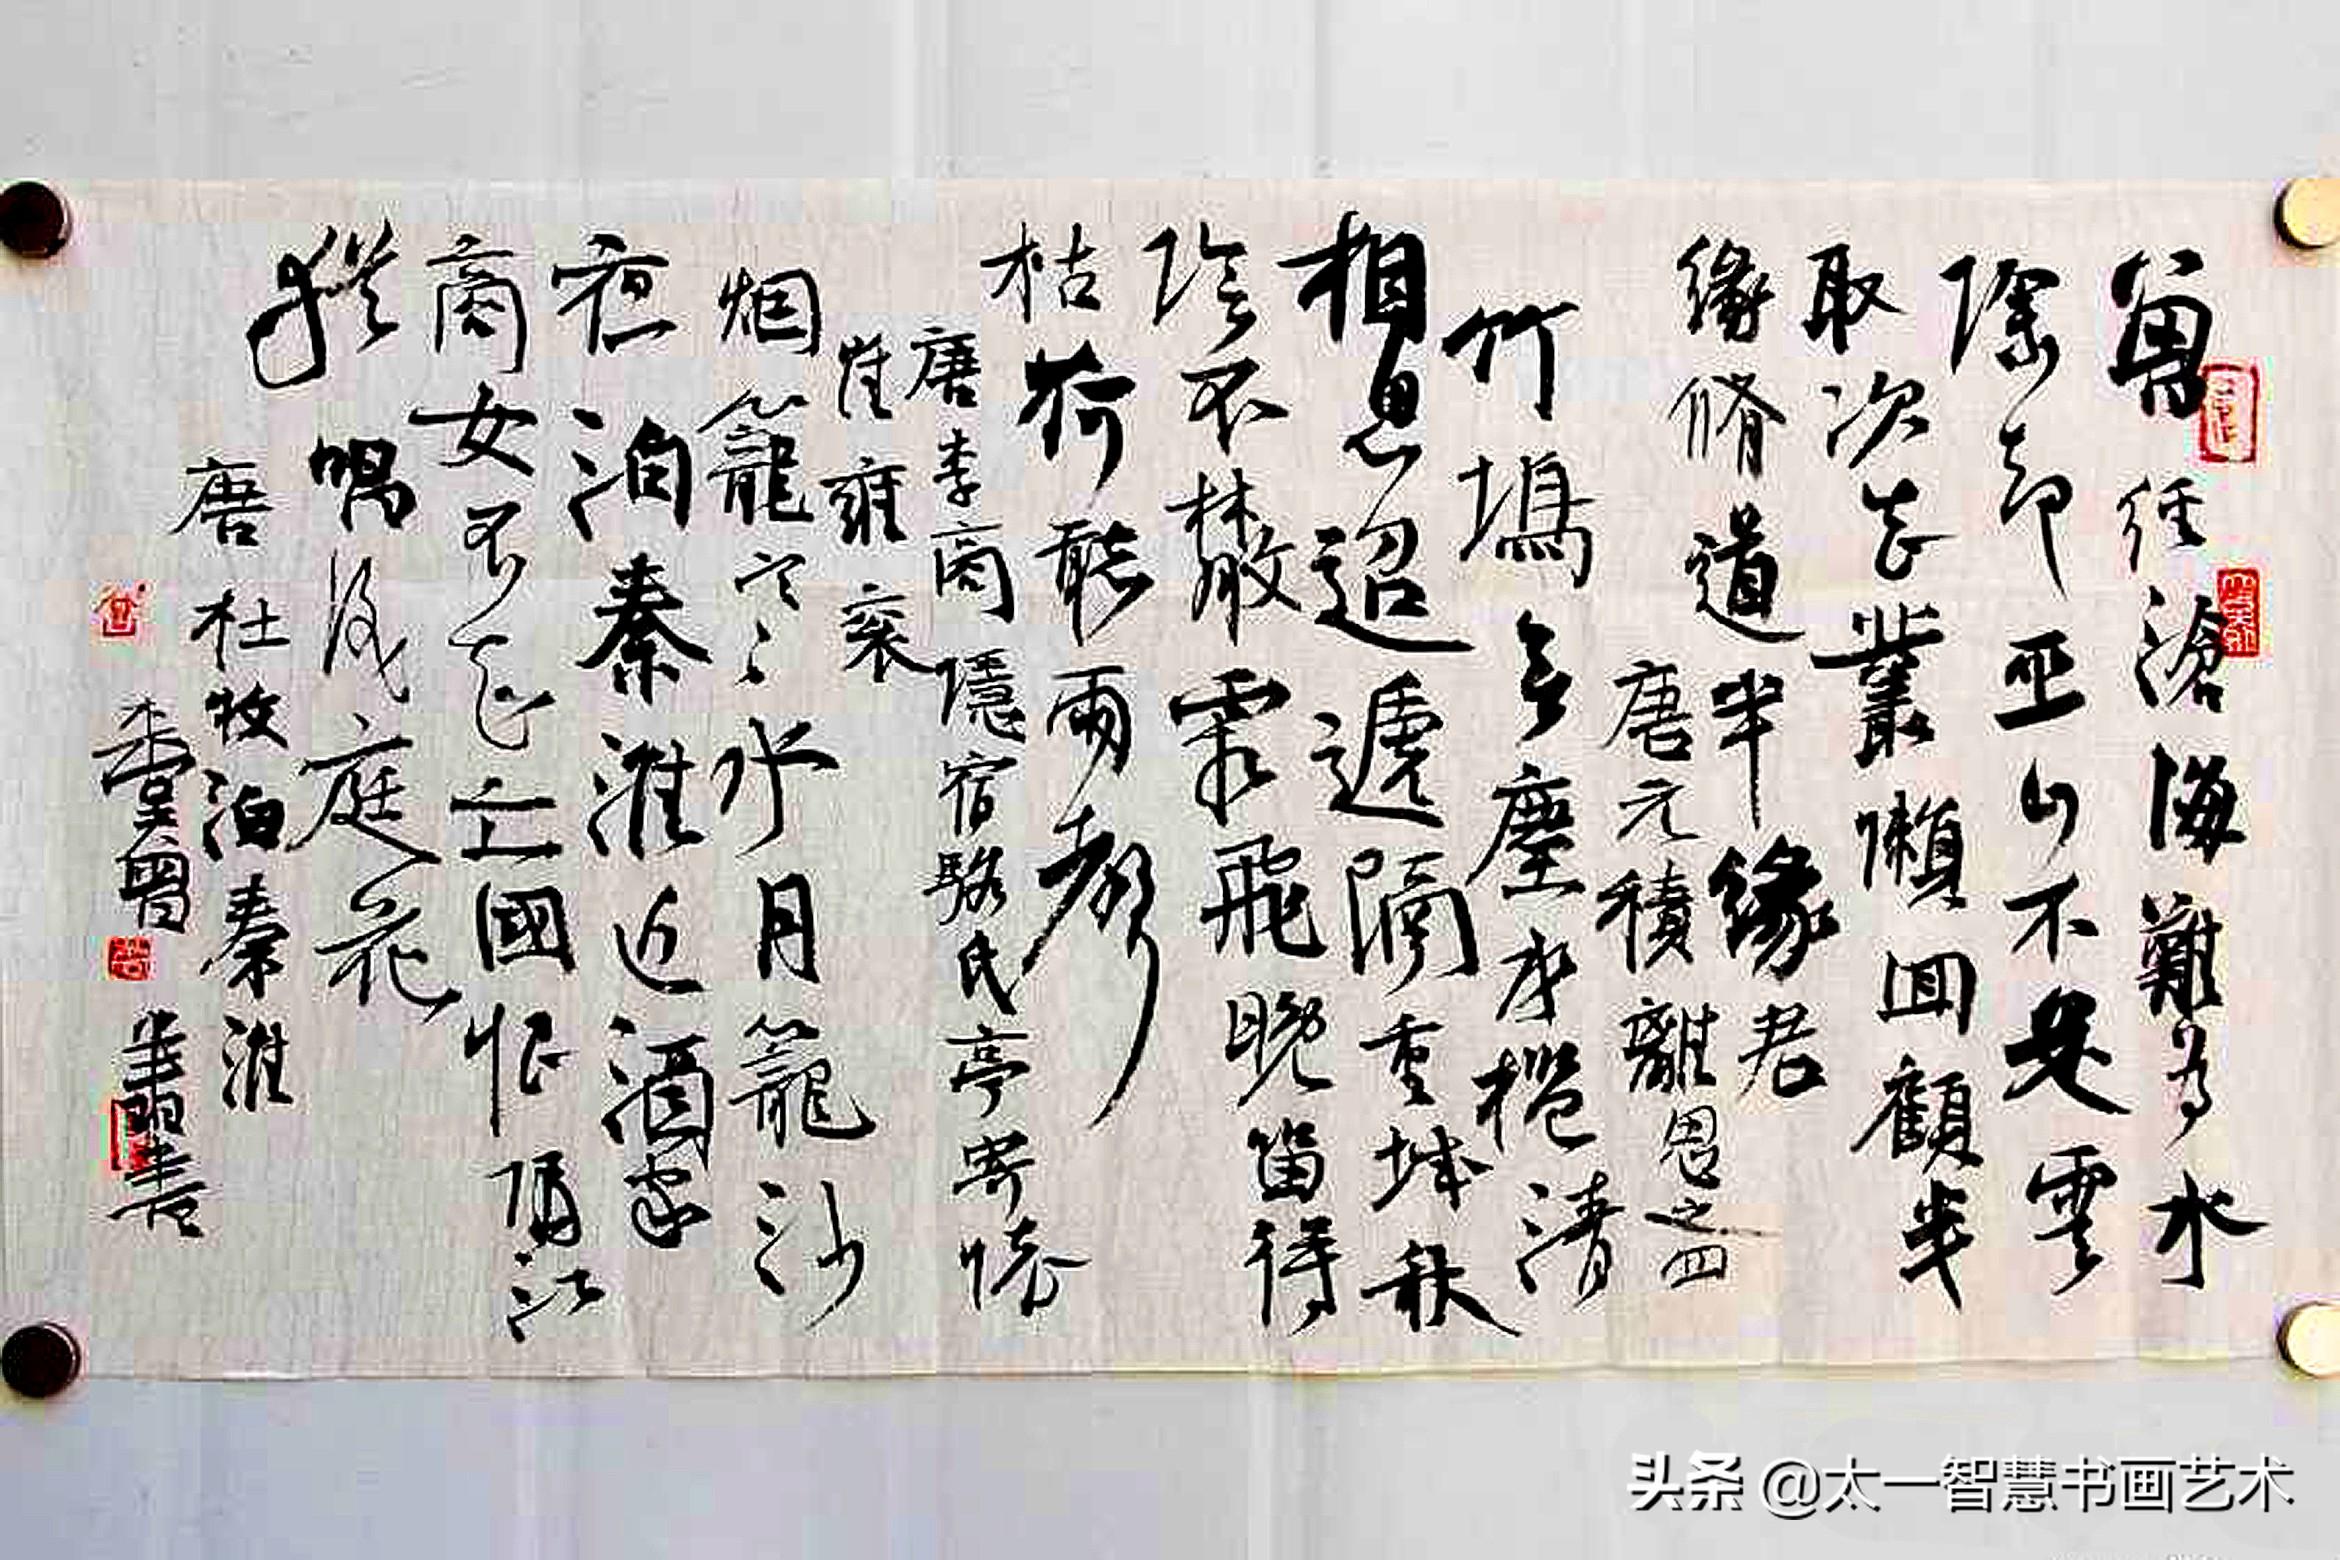 曾經滄海難為水
除却巫山不是雲
取次花叢懶回顧半
緣脩道半緣君
唐元積離思之四
竹塢無塵水檻清
相思迢遞隔重城秋
陰不散霜飛晚留得
枯荷聽雨聲
唐李商隱宿駱氏亭寄懷
崔雍崔衮
烟籠寒水月籠沙
夜泊秦淮近酒家
商女不知亡國恨隔江
猶唱後庭花
唐杜牧泊秦淮
書
头条 @太一智慧书画艺术